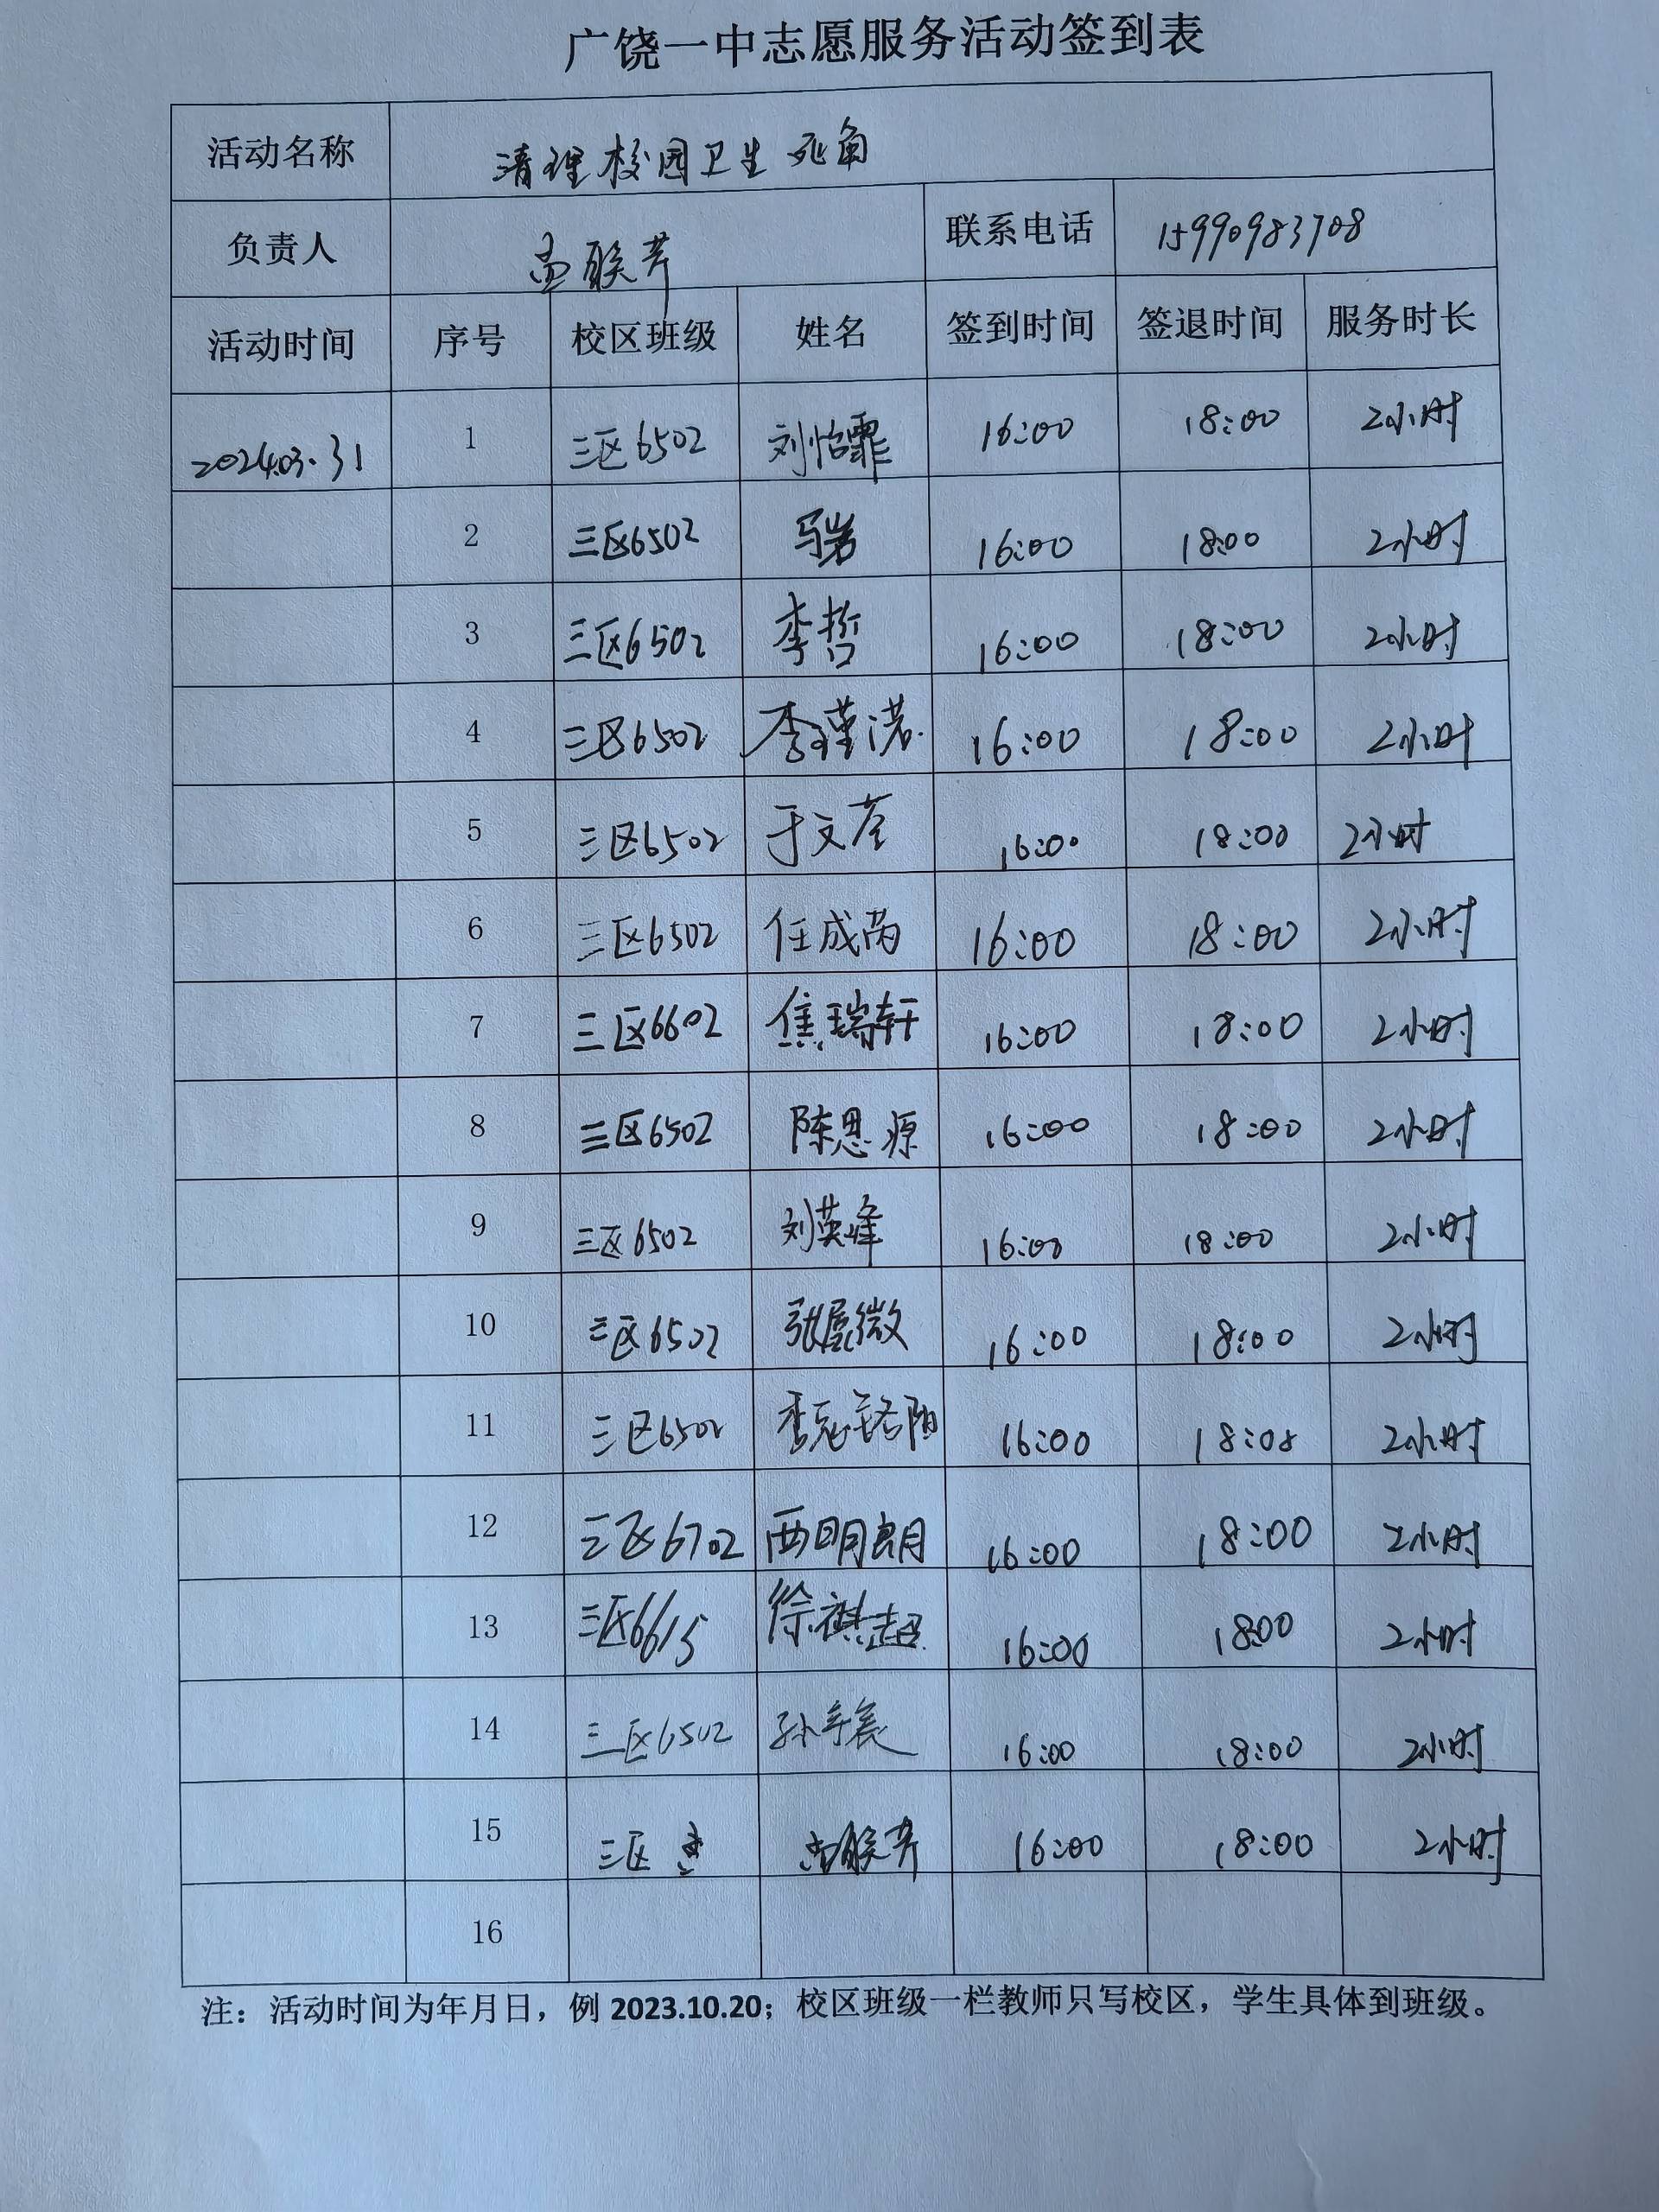 广饶一中志愿服务活动签到表
活动名称 清理校园卫生死角
负责人 孟联芹 联系电话 15990983708
活动时间 序号 校区班级 姓名 签到时间 签退时间 服务时长
2024.03.31 1 三区6502 刘怡霏 16:00 18:00 2小时
2 三区6502 马岩 16:00 18:00 2小时
3 三区6502 李哲 16:00 18:00 2小时
4 三区6502 李瑾诺 16:00 18:00 2小时
5 三区6502 于文荃 16:00 18:00 2小时
6 三区6502 任成芮 16:00 18:00 2小时
7 三区6602 焦瑞轩 16:00 18:00 2小时
8 三区6502 陈思源 16:00 18:00 2小时
9 三区6502 刘英峰 16:00 18:00 2小时
10 三区6502 16:00 18:00 2小时
11 三区6502 16:00 18:00 2小时
12 三区6702 西明朗 16:00 18:00 2小时
13 三区6615 徐祺超 16:00 18:00 2小时
14 三区6502 16:00 18:00 2小时
15 三区 孟联芹 16:00 18:00 2小时
16
注：活动时间为年月日，例 2023.10.20；校区班级一栏教师只写校区，学生具体到班级。